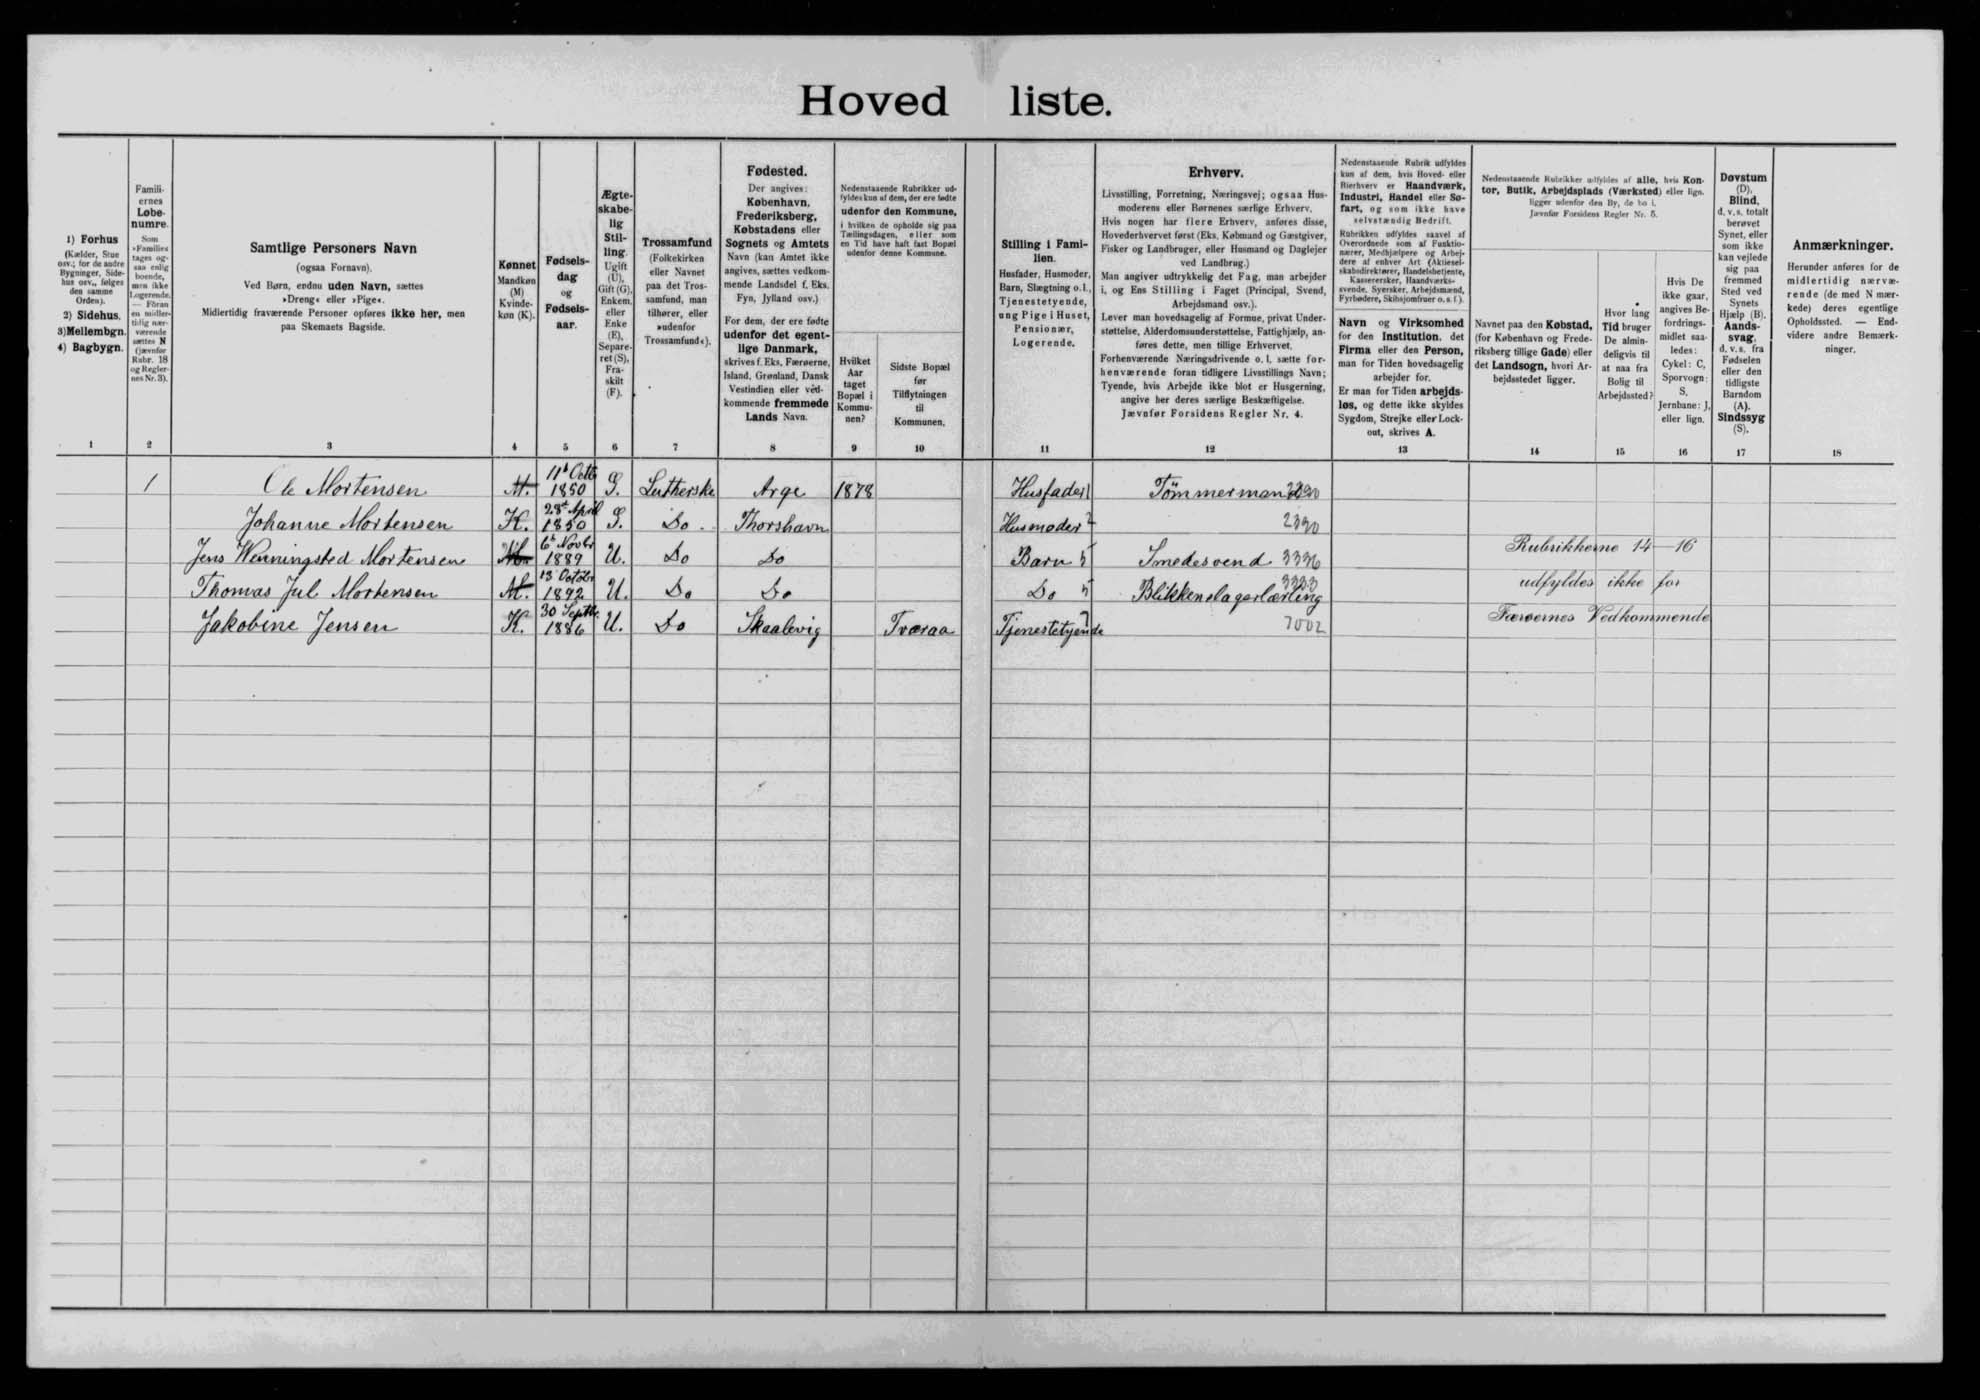 Hoved liste.
1) Forhus
(Kælder, Stue
osv.; for de andre
Bygninger, Side-
hus osv., følges
den samme
Orden).
2) Sidehus.
3) Mellembgn.
4) Bagbygn.
1
Famili-
ernes
Løbe-
numre.
Som
»Familie«
tages og-
saa enlig
boende,
men ikke
Logerende.
— Foran
en midler-
tidig nær-
værende
sættes N
(jævnfør
Rubr. 18
og Regler-
nes Nr. 3).
2
Samtlige Personers Navn
(ogsaa Fornavn).
Ved Børn, endnu uden Navn, sættes
»Dreng« eller »Pige«.
Midlertidig fraværende Personer opføres ikke her, men
paa Skemaets Bagside.
3
Kønnet
Mandkøn
(M)
Kvinde-
køn (K).
4
Fødsels-
dag
og
Fødsels-
aar.
5
Ægte-
skabe-
lig
Stil-
ling.
Ugift
(U),
Gift (G),
Enkem.
eller
Enke
(E),
Separe-
ret (S),
Fra-
skilt
(F).
6
Trossamfund
(Folkekirken
eller Navnet
paa det Tros-
samfund, man
tilhører, eller
»udenfor
Trossamfund«).
7
Fødested.
Der angives:
København,
Frederiksberg,
Købstadens eller
Sognets og Amtets
Navn (kan Amtet ikke
angives, sættes vedkom-
mende Landsdel f. Eks.
Fyn, Jylland osv.)
For dem, der ere fødte
udenfor det egent-
lige Danmark,
skrives f. Eks. Færøerne,
Island, Grønland, Dansk
Vestindien eller ved-
kommende fremmede
Lands Navn.
8
Nedenstaaende Rubrikker ud-
fyldes kun af dem, der ere fødte
udenfor den Kommune,
i hvilken de opholde sig paa
Tællingsdagen, eller som
en Tid have haft fast Bopæl
udenfor denne Kommune.
Hvilket
Aar
taget
Bopæl i
Kommu-
nen?
9
Sidste Bopæl
før
Tilflytningen
til
Kommunen.
10
Stilling i Fami-
lien.
Husfader, Husmoder,
Barn, Slægtning o.l.,
Tjenestetyende,
ung Pige i Huset,
Pensionær,
Logerende.
11
Erhverv.
Livsstilling, Forretning, Næringsvej; ogsaa Hus-
moderens eller Børnenes særlige Erhverv.
Hvis nogen har flere Erhverv, anføres disse,
Hovederhvervet først (Eks. Købmand og Gæstgiver,
Fisker og Landbruger, eller Husmand og Daglejer
ved Landbrug.)
Man angiver udtrykkelig det Fag, man arbejder
i, og Ens Stilling i Faget (Principal, Svend,
Arbejdsmand osv.).
Lever man hovedsagelig af Formue, privat Under-
støttelse, Alderdomsunderstøttelse, Fattighjælp, an-
føres dette, men tillige Erhvervet.
Forhenværende Næringsdrivende o. l. sætte for-
henværende foran tidligere Livsstillings Navn;
Tyende, hvis Arbejde ikke blot er Husgerning,
angive her deres særlige Beskæftigelse.
Jævnfør Forsidens Regler Nr. 4.
12
Nedenstaaende Rubrik udfyldes
kun af dem, hvis Hoved- eller
Bierhverv er Haandværk,
Industri, Handel eller Sø-
fart, og som ikke have
selvstændig Bedrift.
Rubrikken udfyldes saavel af
Overordnede som af Funktio-
nærer, Medhjælpere og Arbej-
dere af enhver Art (Aktiesel-
skabsdirektører, Handelsbetjente,
Kasserersker, Haandværks-
svende, Syersker, Arbejdsmænd,
Fyrbødere, Skibsjomfruer o. s. f.).
Navn og Virksomhed
for den Institution, det
Firma eller den Person,
man for Tiden hovedsagelig
arbejder for.
Er man for Tiden arbejds-
løs, og dette ikke skyldes
Sygdom, Strejke eller Lock-
out, skrives A.
13
Nedenstaaende Rubrikker udfyldes af alle, hvis Kon-
tor, Butik, Arbejdsplads (Værksted) eller lign.
ligger udenfor den By, de bo i.
Jævnfør Forsidens Regler Nr. 5.
Navnet paa den Købstad,
(for København og Frede-
riksberg tillige Gade) eller
det Landsogn, hvori Ar-
bejdsstedet ligger.
14
Hvor lang
Tid bruger
De almin-
deligvis til
at naa fra
Bolig til
Arbejdssted?
15
Hvis De
ikke gaar,
angives Be-
fordrings-
midlet saa-
ledes:
Cykel: C,
Sporvogn:
S,
Jernbane: J,
eller lign.
16
Døvstum
(D),
Blind,
d. v. s. totalt
berøvet
Synet, eller
som ikke
kan vejlede
sig paa
fremmed
Sted ved
Synets
Hjælp (B).
Aands-
svag,
d. v. s. fra
Fødselen
eller den
tidligste
Barndom
(A).
Sindssyg
(S).
17
Anmærkninger.
Herunder anføres for de
midlertidig nærvæ-
rende (de med N mær-
kede) deres egentlige
Opholdssted. — End-
videre andre Bemærk-
ninger.
18
1 Ole Mortensen M. 11t Octb 1850 G. Lutherske Arge 1878 Husfader 1 Tömmermand 2390
Johanne Mortensen K. 28t April 1850 G. Do Thorshavn Husmoder 2 2390
Jens Wenningsted Mortensen 6t Novbr 1889 U. Do Do Barn 5 Smedesvend 3336 Rubrikkerne 14–16
Thomas Jul Mortensen M. 13 Octobr 1892 U. Do Do Do 5 Blikkenslagerlærling 3333 udfyldes ikke for
Jakobine Jensen K. 30 Septbr. 1886 U. Do Skaalevig Tværaa Tjenestetyende 7 7002 Færøernes Vedkommende